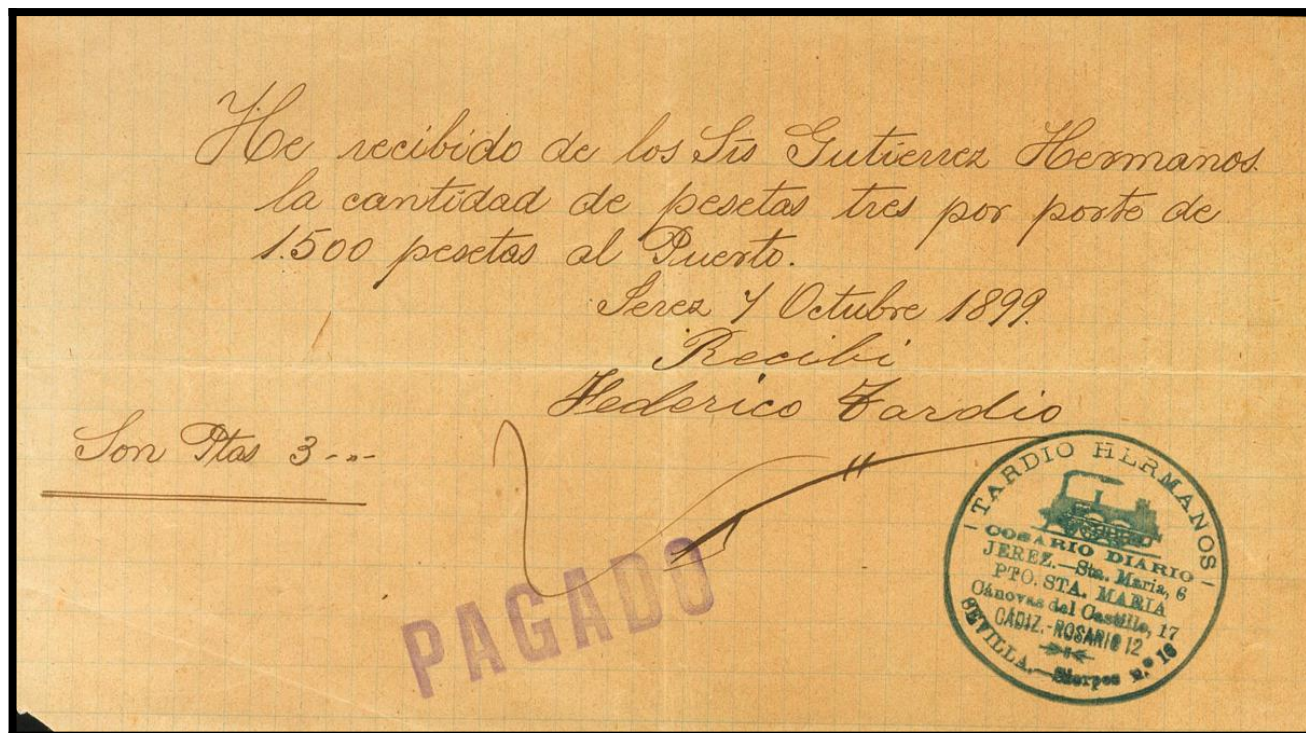 He recibido de los Srs Gutierrez Hermanos.
la cantidad de pesetas tres por porte de
1.500 pesetas al Puerto.
Jerez 7 Octubre 1899.
Recibi
Federico Tardio
Son Ptas 3 - "-
PAGADO
TARDIO HERMANOS
COSARIO DIARIO
JEREZ.—Sta. Maria, 6
PTO. STA. MARIA
Cánovas del Castillo, 17
CADIZ.-ROSARIO 12
SEVILLA.—Sierpes n.º